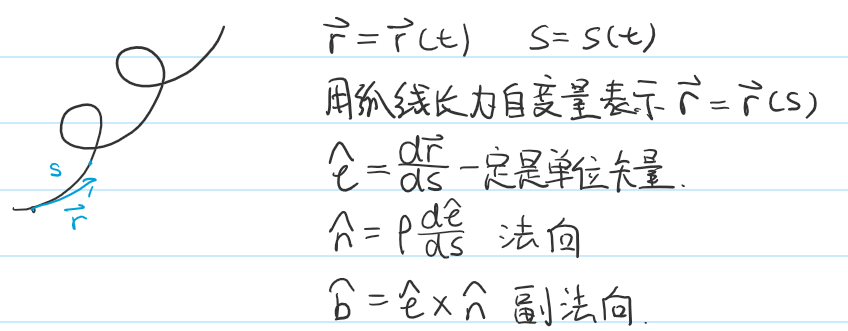 s
r⃗
r⃗ = r⃗(t) S = S(t)
用弧线长为自变量表示 r⃗ = r⃗(s)
t̂ = dr⃗/ds 一定是单位矢量.
n̂ = ρ dt̂/ds 法向
b̂ = t̂ × n̂ 副法向.